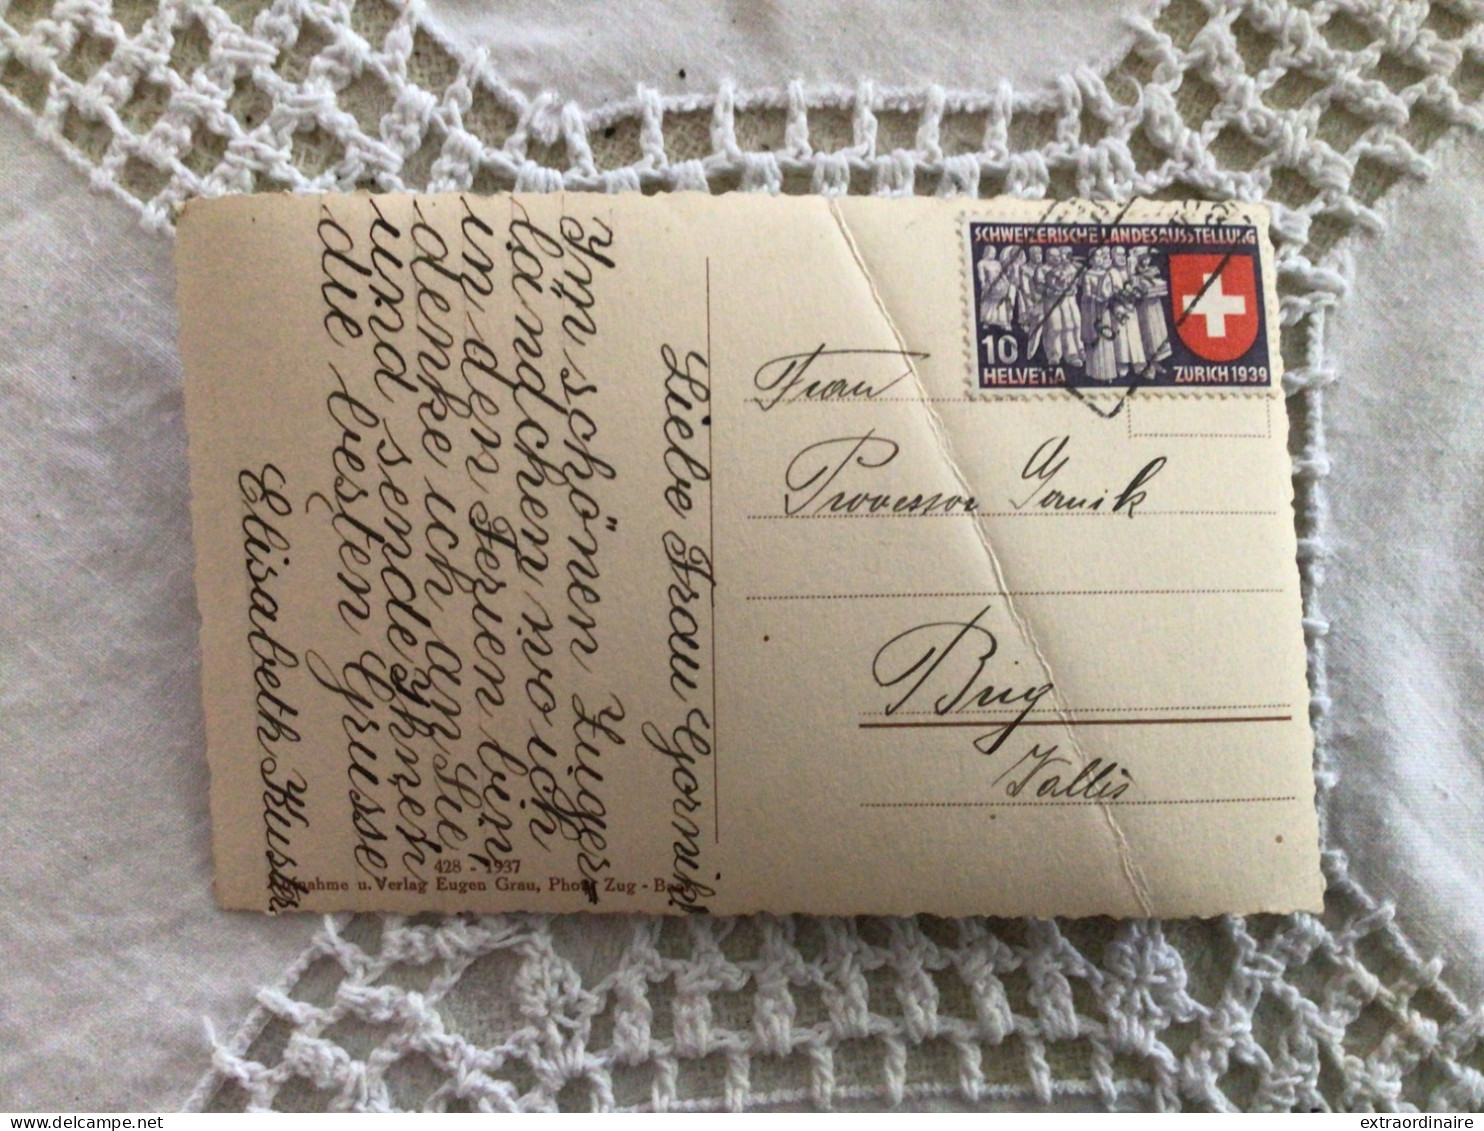 Liebe Frau Gornik!
Im schönen Zuger-
ländchen wo ich
in den Ferien bin,
denke ich an Sie
und sende Ihnen
die besten Grüsse
Elisabeth Kuster.
SCHWEIZERISCHE LANDESAUSSTELLUNG
10
HELVETIA
ZÜRICH 1939
Frau
Provessor Gornik
Brig
Wallis
428 - 1937
Aufnahme u. Verlag Eugen Grau, Photo Zug - Baar
extraordinaire